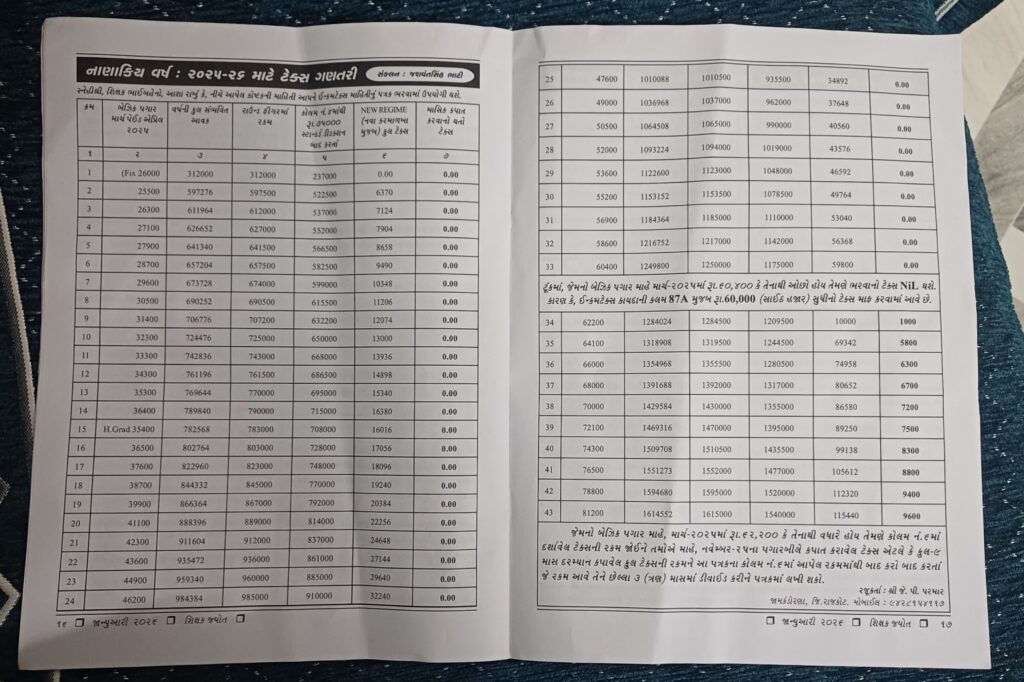 નાણાકિય વર્ષ : ૨૦૨૫-૨૬ માટે ટેક્સ ગણતરી સંકલન : જશવંતસિંહ ભાટી
સ્નેહીશ્રી, શિક્ષક ભાઈબહેનો, આશા રાખું કે, નીચે આપેલ કોષ્ટકની માહિતી આપને ઈન્કમટેક્સ માહિતીનું પત્રક ભરવામાં ઉપયોગી થશે.
ક્રમ બેઝિક પગાર માર્ચ પેઈડ એપ્રિલ ૨૦૨૫ વર્ષની કુલ સંભવિત આવક રાઉન્ડ ફીગરમાં રકમ કોલમ નં.૪માંથી રૂા.૭૫૦૦૦ સ્ટાન્ડર્ડ ડીડક્શન બાદ કરતાં NEW REGIME (નવા કરમાળખા મુજબ) કુલ ટેક્સ માસિક કપાત કરવાનો થતો ટેક્સ
૧ ૨ ૩ ૪ ૫ ૬ ૭
1 (Fix 26000 312000 312000 237000 0.00 0.00
2 25500 597276 597500 522500 6370 0.00
3 26300 611964 612000 537000 7124 0.00
4 27100 626652 627000 552000 7904 0.00
5 27900 641340 641500 566500 8658 0.00
6 28700 657204 657500 582500 9490 0.00
7 29600 673728 674000 599000 10348 0.00
8 30500 690252 690500 615500 11206 0.00
9 31400 706776 707200 632200 12074 0.00
10 32300 724476 725000 650000 13000 0.00
11 33300 742836 743000 668000 13936 0.00
12 34300 761196 761500 686500 14898 0.00
13 35300 769644 770000 695000 15340 0.00
14 36400 789840 790000 715000 16380 0.00
15 H.Grad 35400 782568 783000 708000 16016 0.00
16 36500 802764 803000 728000 17056 0.00
17 37600 822960 823000 748000 18096 0.00
18 38700 844332 845000 770000 19240 0.00
19 39900 866364 867000 792000 20384 0.00
20 41100 888396 889000 814000 22256 0.00
21 42300 911604 912000 837000 24648 0.00
22 43600 935472 936000 861000 27144 0.00
23 44900 959340 960000 885000 29640 0.00
24 46200 984384 985000 910000 32240 0.00
૧૬ જાન્યુઆરી ૨૦૨૬ શિક્ષક જ્યોત
25 47600 1010088 1010500 935500 34892 0.00
26 49000 1036968 1037000 962000 37648 0.00
27 50500 1064508 1065000 990000 40560 0.00
28 52000 1093224 1094000 1019000 43576 0.00
29 53600 1122600 1123000 1048000 46592 0.00
30 55200 1153152 1153500 1078500 49764 0.00
31 56900 1184364 1185000 1110000 53040 0.00
32 58600 1216752 1217000 1142000 56368 0.00
33 60400 1249800 1250000 1175000 59800 0.00
ટૂંકમાં, જેમનો બેઝિક પગાર માહે માર્ચ-૨૦૨૫માં રૂા.૬૦,૪૦૦ કે તેનાથી ઓછો હોય તેમણે ભરવાનો ટેક્સ NiL થશે.
કારણ કે, ઈન્કમટેક્સ કાયદાની કલમ 87A મુજબ રૂા.60,000 (સાઈઠ હજાર) સુધીનો ટેક્સ માફ કરવામાં આવે છે.
34 62200 1284024 1284500 1209500 10000 1000
35 64100 1318908 1319500 1244500 69342 5800
36 66000 1354968 1355500 1280500 74958 6300
37 68000 1391688 1392000 1317000 80652 6700
38 70000 1429584 1430000 1355000 86580 7200
39 72100 1469316 1470000 1395000 89250 7500
40 74300 1509708 1510500 1435500 99138 8300
41 76500 1551273 1552000 1477000 105612 8800
42 78800 1594680 1595000 1520000 112320 9400
43 81200 1614552 1615000 1540000 115440 9600
જેમનો બેઝિક પગાર માહે, માર્ચ-૨૦૨૫માં રૂા.૬૨,૨૦૦ કે તેનાથી વધારે હોય તેમણે કોલમ નં.૬માં
દર્શાવેલ ટેક્સની રકમ જોઈને તમોએ માહે, નવેમ્બર-૨૫ના પગારબીલે કપાત કરાવેલ ટેક્સ એટલે કે કુલ-૯
માસ દરમ્યાન કપાવેલ કુલ ટેક્સની રકમને આ પત્રકના કોલમ નં.૬માં આપેલ રકમમાંથી બાદ કરો બાદ કરતાં
જે રકમ આવે તેને છેલ્લા ૩ (ત્રણ) માસમાં ડીવાઈડ કરીને પત્રકમાં લખી શકો.
રજૂકર્તા : શ્રી જે. પી. પરમાર
જામકંડોરણા, જિ.રાજકોટ. મોબાઈલ : ૯૪૨૮૧૫૪૧૧૭
જાન્યુઆરી ૨૦૨૬ શિક્ષક જ્યોત ૧૭